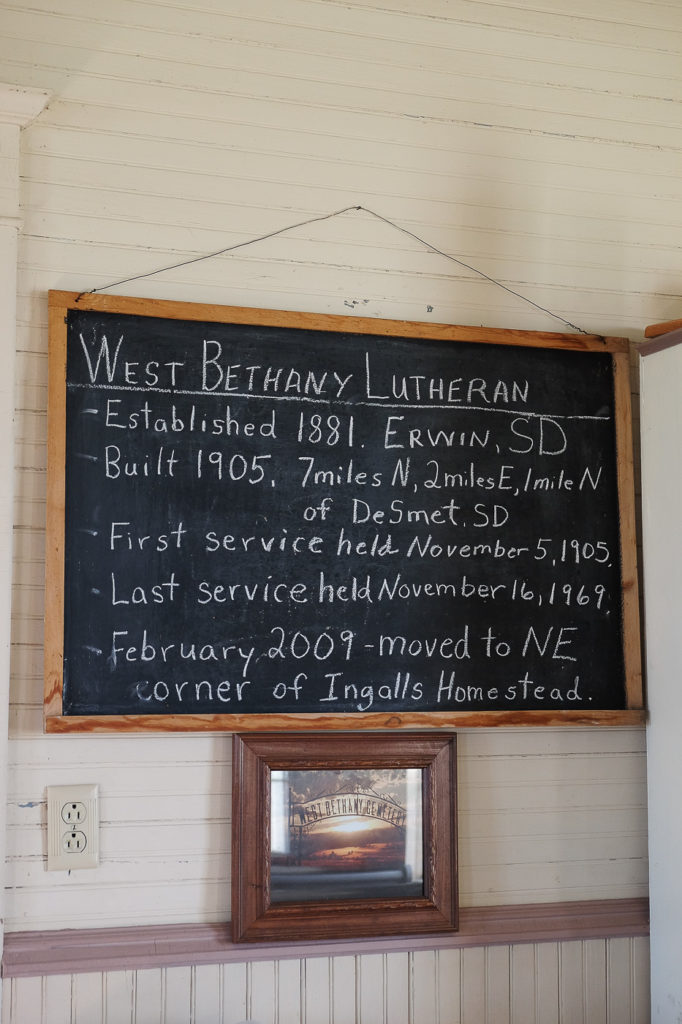 West Bethany Lutheran
- Established 1881. Erwin, SD
- Built 1905. 7miles N, 2miles E, 1mile N
of DeSmet, SD
- First service held November 5, 1905.
- Last service held November 16, 1969.
- February 2009 - moved to NE
corner of Ingalls Homestead.
WEST BETHANY CEMETERY